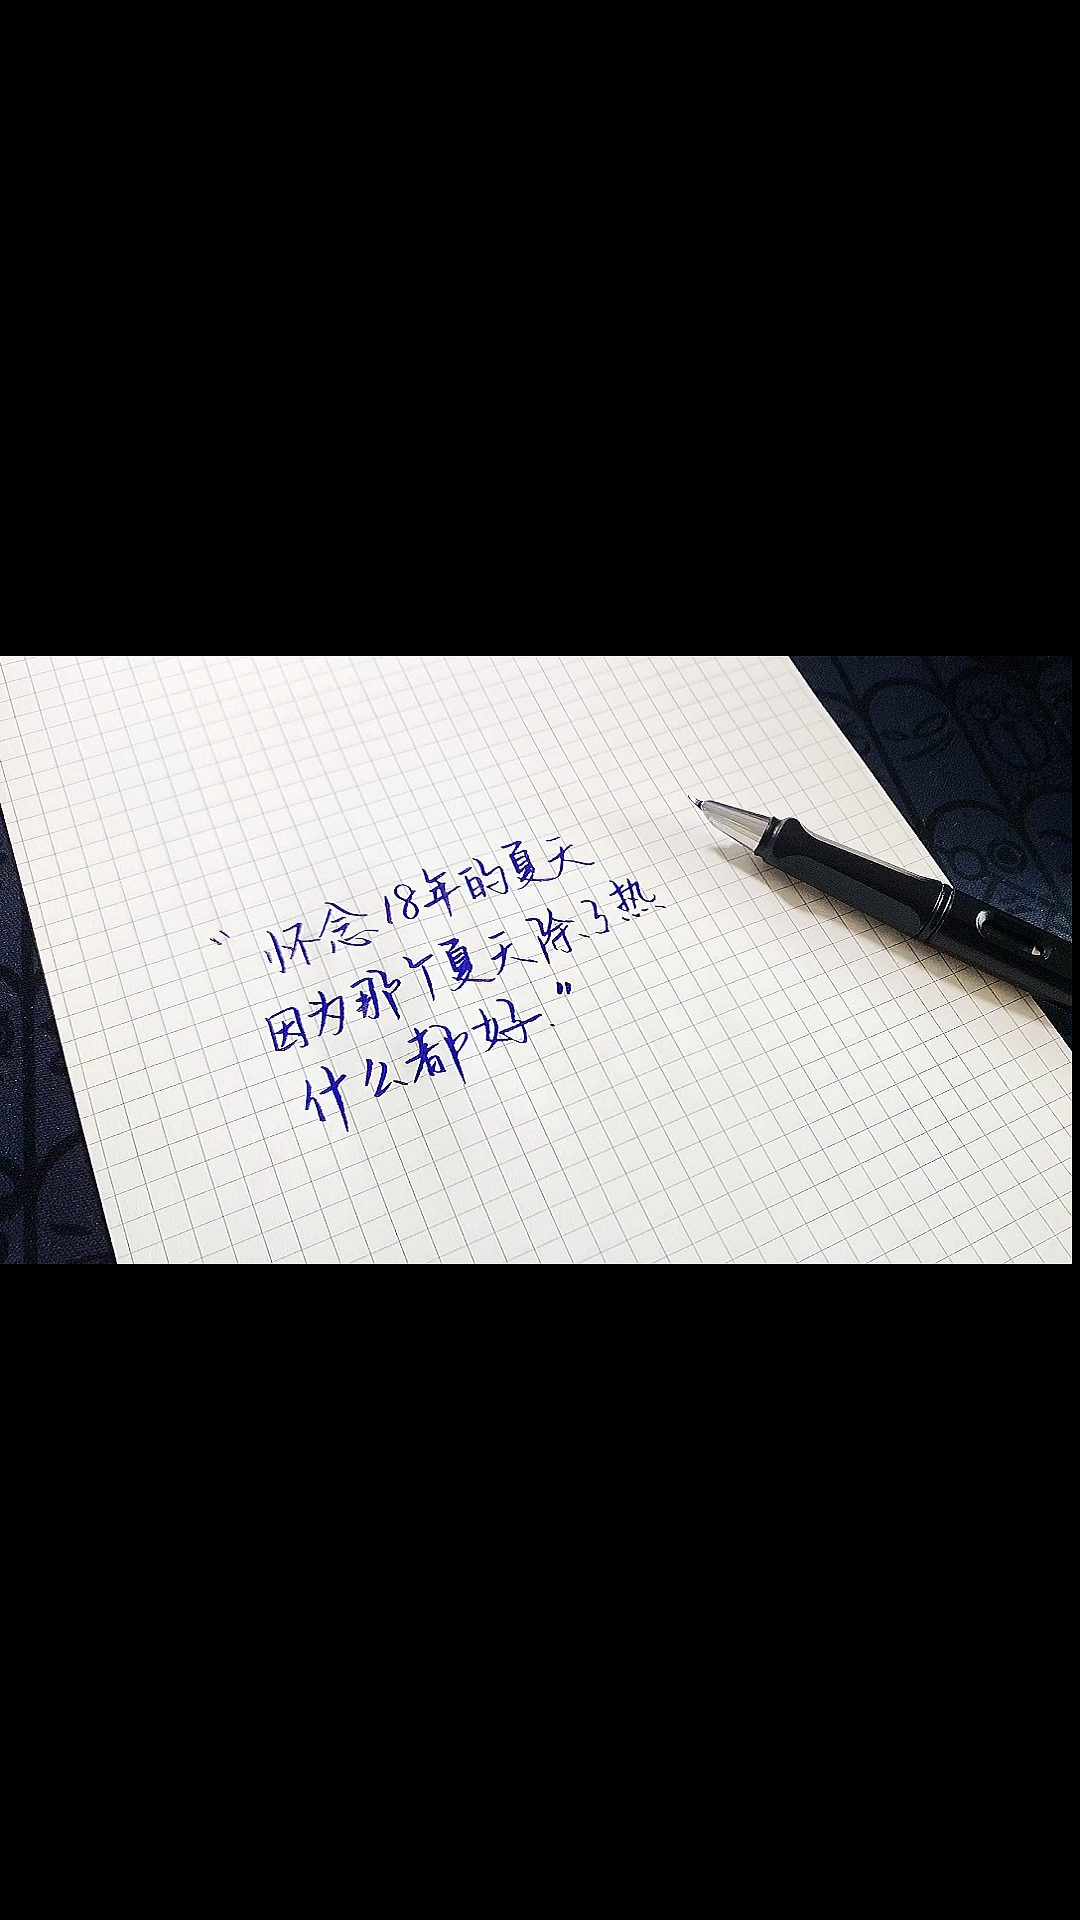 “怀念18年的夏天
因为那个夏天除了热
什么都好.”